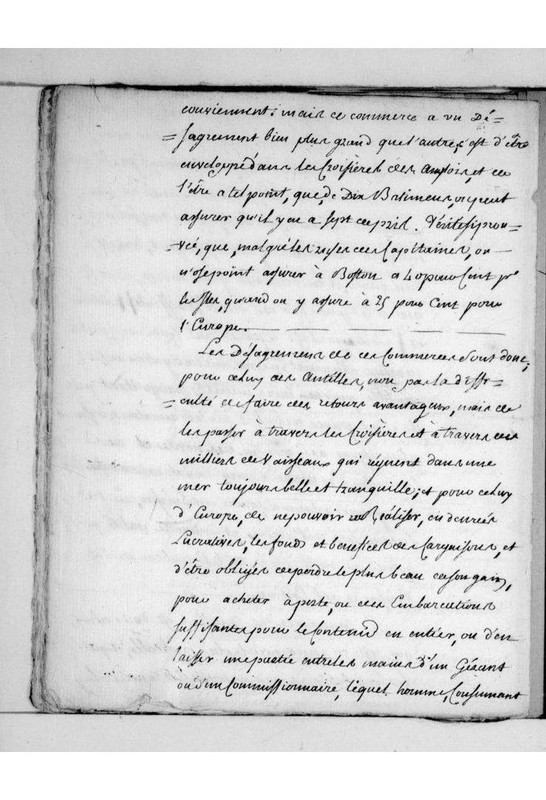 conviennent: mais ce commerce a un Dé=
=sagrement bien plus grand que l'autre; c'est d'être
enveloppé dans les Croisières des anglois, et de
l'être a tel point, que de Dix Batimens, on peut
assurer qu'il y en a sept de pris. Vérité si prou=
=vée, que, malgré les ruses des Capitaines, on
n'ose point assurer à Boston a 40 pour Cent pr
les Isles, quand on y assure à 25 pour Cent pour
l'Europe.
Les Désagremens de ces Commerces sont donc,
pour celuy des Antilles, non pas la diffi=
=culté de faire des retours avantageux, mais de
les passer à travers les Croisières et à travers des
milliers de Vaisseaux qui règnent dans une
mer toujours belle et tranquille; et pour celuy
d'Europe, de ne pouvoir Réaliser, en denrées
Lucratives, les fonds et benefices des Cargaisons, et
d'être obligés de perdre le plus beau de son gain,
pour acheter à perte, ou des Embarcations
suffisantes pour le Contenu en entier, ou d'en
laisser une partie entre les mains d'un Gérant
ou d'un Commissionnaire, lequel homme, Consumant